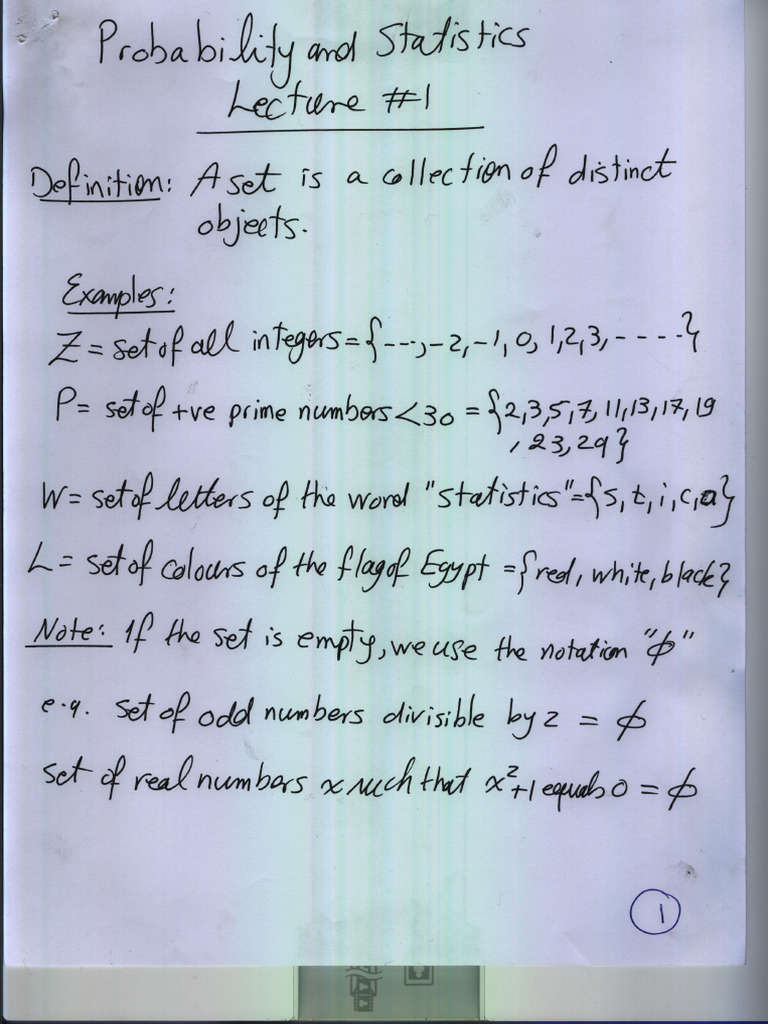 Probability and Statistics
Lecture #1
Definition: A set is a collection of distinct
objects.
Examples:
Z = set of all integers = {---, -2, -1, 0, 1, 2, 3, - - - -}
P = set of +ve prime numbers < 30 = {2, 3, 5, 7, 11, 13, 17, 19
, 23, 29}
W = set of letters of the word "statistics" = {s, t, i, c, a}
L = set of colours of the flag of Egypt = {red, white, black}
Note: If the set is empty, we use the notation "ϕ"
e.g. set of odd numbers divisible by 2 = ϕ
set of real numbers x such that x²+1 equals 0 = ϕ
1